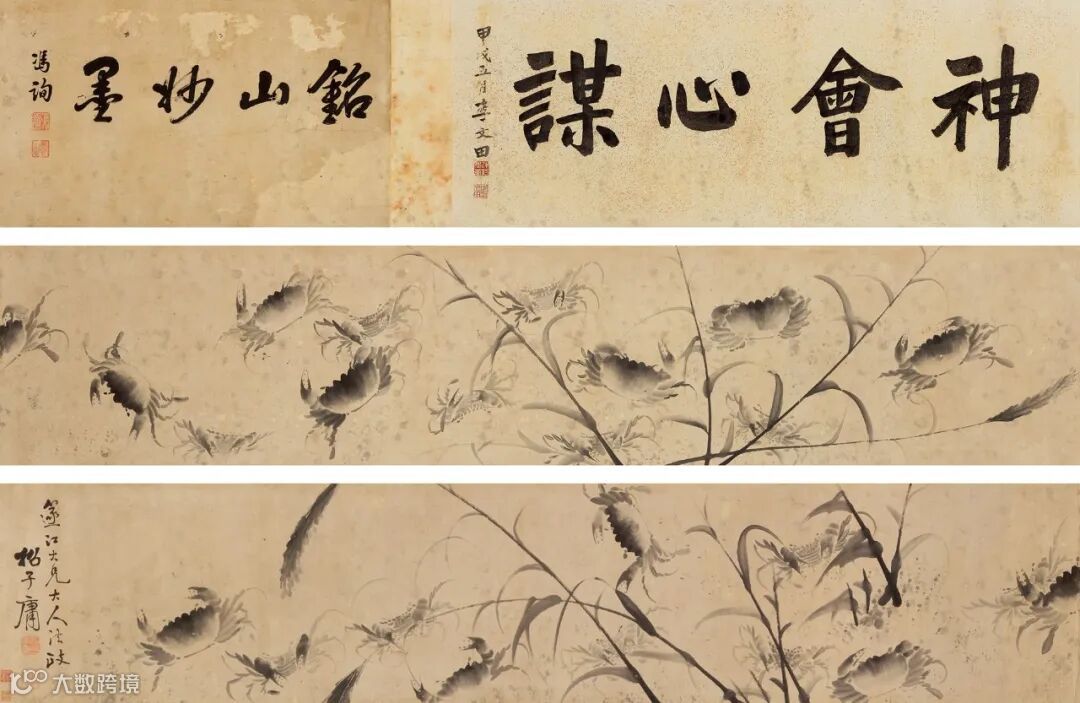 神會心謀
甲戌五月李文田
銘山妙墨
馮詢
江大兄大人法政
招子庸
大数跨境